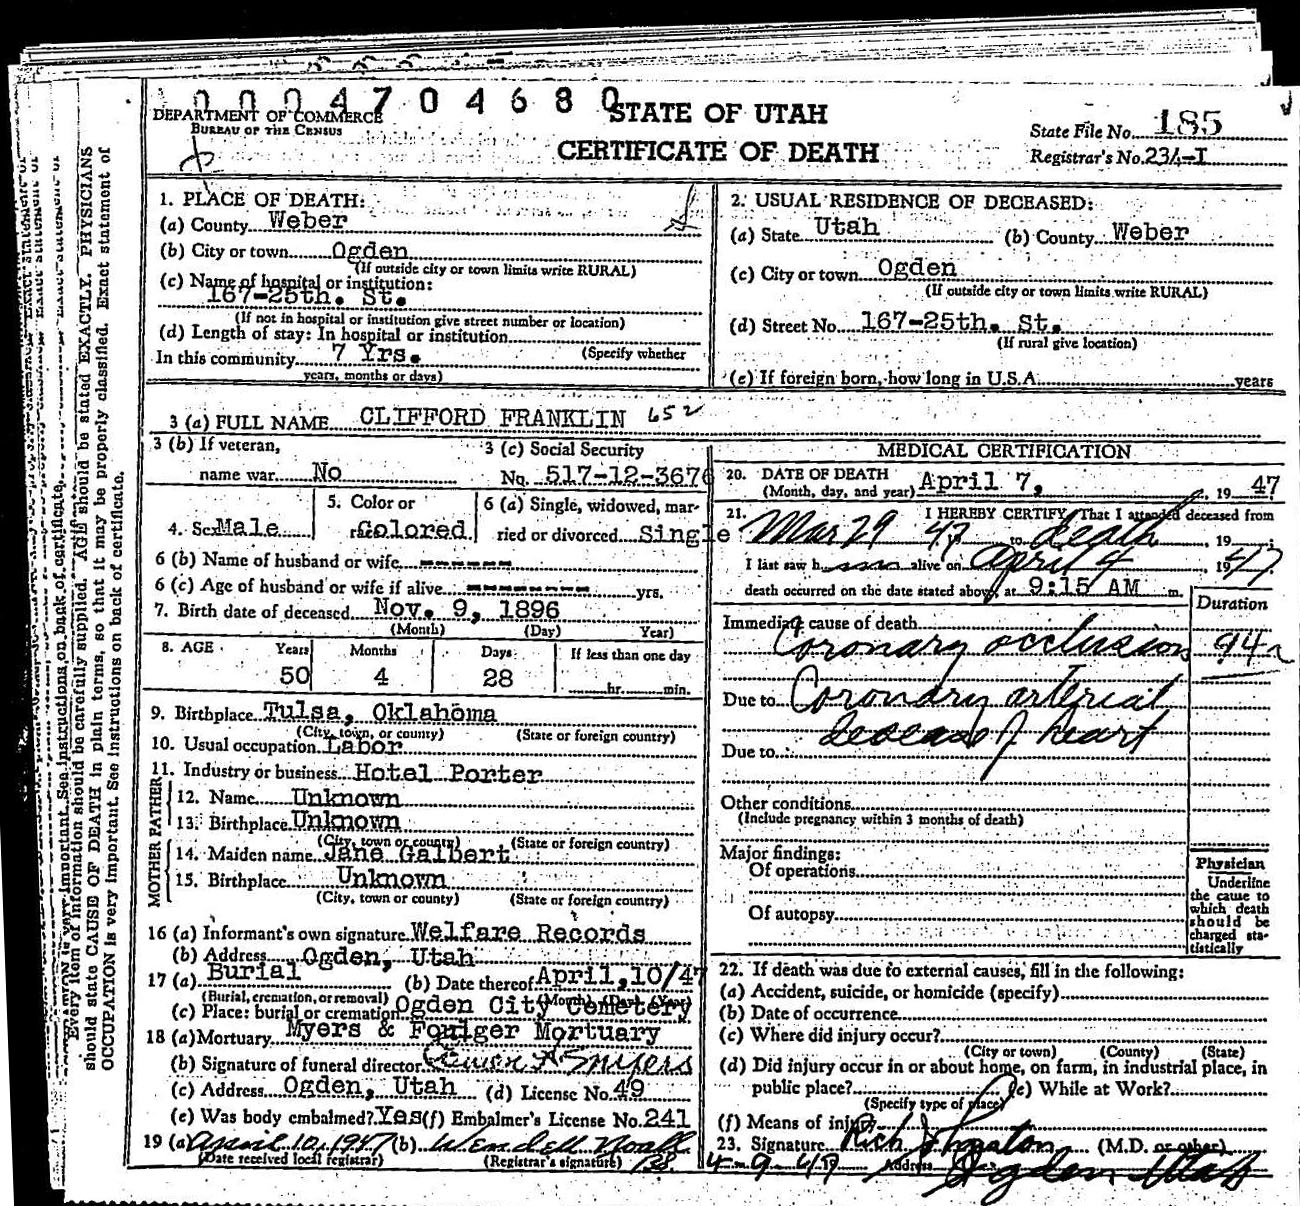 0 0 0 4 7 0 4 6 8 0
DEPARTMENT OF COMMERCE
BUREAU OF THE CENSUS
STATE OF UTAH
CERTIFICATE OF DEATH
State File No. 185
Registrar's No. 234-I
1. PLACE OF DEATH:
(a) County Weber
(b) City or town Ogden
(If outside city or town limits write RURAL)
(c) Name of hospital or institution:
167-25th. St.
(If not in hospital or institution give street number or location)
(d) Length of stay: In hospital or institution
In this community 7 Yrs. (Specify whether
years, months or days)
2. USUAL RESIDENCE OF DECEASED:
(a) State Utah (b) County Weber
(c) City or town Ogden
(If outside city or town limits write RURAL)
(d) Street No. 167-25th. St.
(If rural give location)
(e) If foreign born, how long in U.S.A. years
3 (a) FULL NAME CLIFFORD FRANKLIN 652
3 (b) If veteran,
name war No
3 (c) Social Security
No. 517-12-3676
4. Sex Male
5. Color or
race Colored
6 (a) Single, widowed, mar-
ried or divorced Single
6 (b) Name of husband or wife ------
6 (c) Age of husband or wife if alive -------- yrs.
7. Birth date of deceased Nov. 9, 1896
(Month) (Day) Year)
8. AGE Years Months Days If less than one day
50 4 28 hr. min.
9. Birthplace Tulsa, Oklahoma
(City, town, or county) (State or foreign country)
10. Usual occupation Labor
11. Industry or business Hotel Porter
FATHER
12. Name Unknown
13. Birthplace Unknown
(City, town or county) (State or foreign country)
MOTHER
14. Maiden name Jane Galbert
15. Birthplace Unknown
(City, town or county) (State or foreign country)
16 (a) Informant's own signature Welfare Records
(b) Address Ogden, Utah
17 (a) Burial (b) Date thereof April, 10/47
(Burial, cremation, or removal) (Month) (Day) (Year)
(c) Place: burial or cremation Ogden City Cemetery
18 (a) Mortuary Myers & Foulger Mortuary
(b) Signature of funeral director Myers
(c) Address Ogden, Utah (d) License No. 49
(e) Was body embalmed? Yes (f) Embalmer's License No. 241
19 (a) April 10, 1947 (b) Wendell Noall
(Date received local registrar) (Registrar's signature)
MEDICAL CERTIFICATION
20. DATE OF DEATH
(Month, day, and year) April 7, , 19 47
21. I HEREBY CERTIFY, That I attended deceased from
Mar 29 47 to death , 19
I last saw h im alive on April 4 , 19 47
death occurred on the date stated above, at 9:15 AM m.
Duration
Immediate cause of death
Coronary occlusion
Due to Coronary arterial
disease of heart
Due to
Other conditions
(Include pregnancy within 3 months of death)
Major findings:
Of operations
Of autopsy
Physician
Underline
the cause to
which death
should be
charged sta-
tistically
22. If death was due to external causes, fill in the following:
(a) Accident, suicide, or homicide (specify)
(b) Date of occurrence
(c) Where did injury occur?
(City or town) (County) (State)
(d) Did injury occur in or about home, on farm, in industrial place, in
public place? (e) While at Work?
(Specify type of place)
(f) Means of injury
23. Signature Rich Johnston (M.D. or other)
4-9-47 Address Ogden Utah
Every item of information should be carefully supplied. AGE should be stated EXACTLY. PHYSICIANS
should state CAUSE OF DEATH in plain terms, so that it may be properly classified. Exact statement of
OCCUPATION is very important. See instructions on back of certificate.